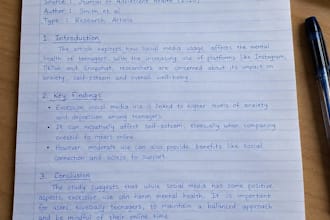 Source : Journal of Adolescent Health (2020)
Author : Smith et al.
Type : Research Article
1. Introduction
The article explores how social media usage affects the mental
health of teenagers. With the increasing use of platforms like Instagram,
TikTok and Snapchat, researchers are concerned about its impact on
anxiety, self-esteem and overall well-being.
2. Key Findings
• Excessive social media use is linked to higher levels of anxiety
and depression among teenagers.
• It can negatively affect self-esteem, especially when comparing
oneself to others online.
• However, moderate use can also provide benefits like social
connection and access to support.
3. Conclusion
The study suggests that while social media has some positive
aspects, excessive use can harm mental health. It is important
for users, especially teenagers, to maintain a balanced approach
and be mindful of their online time.